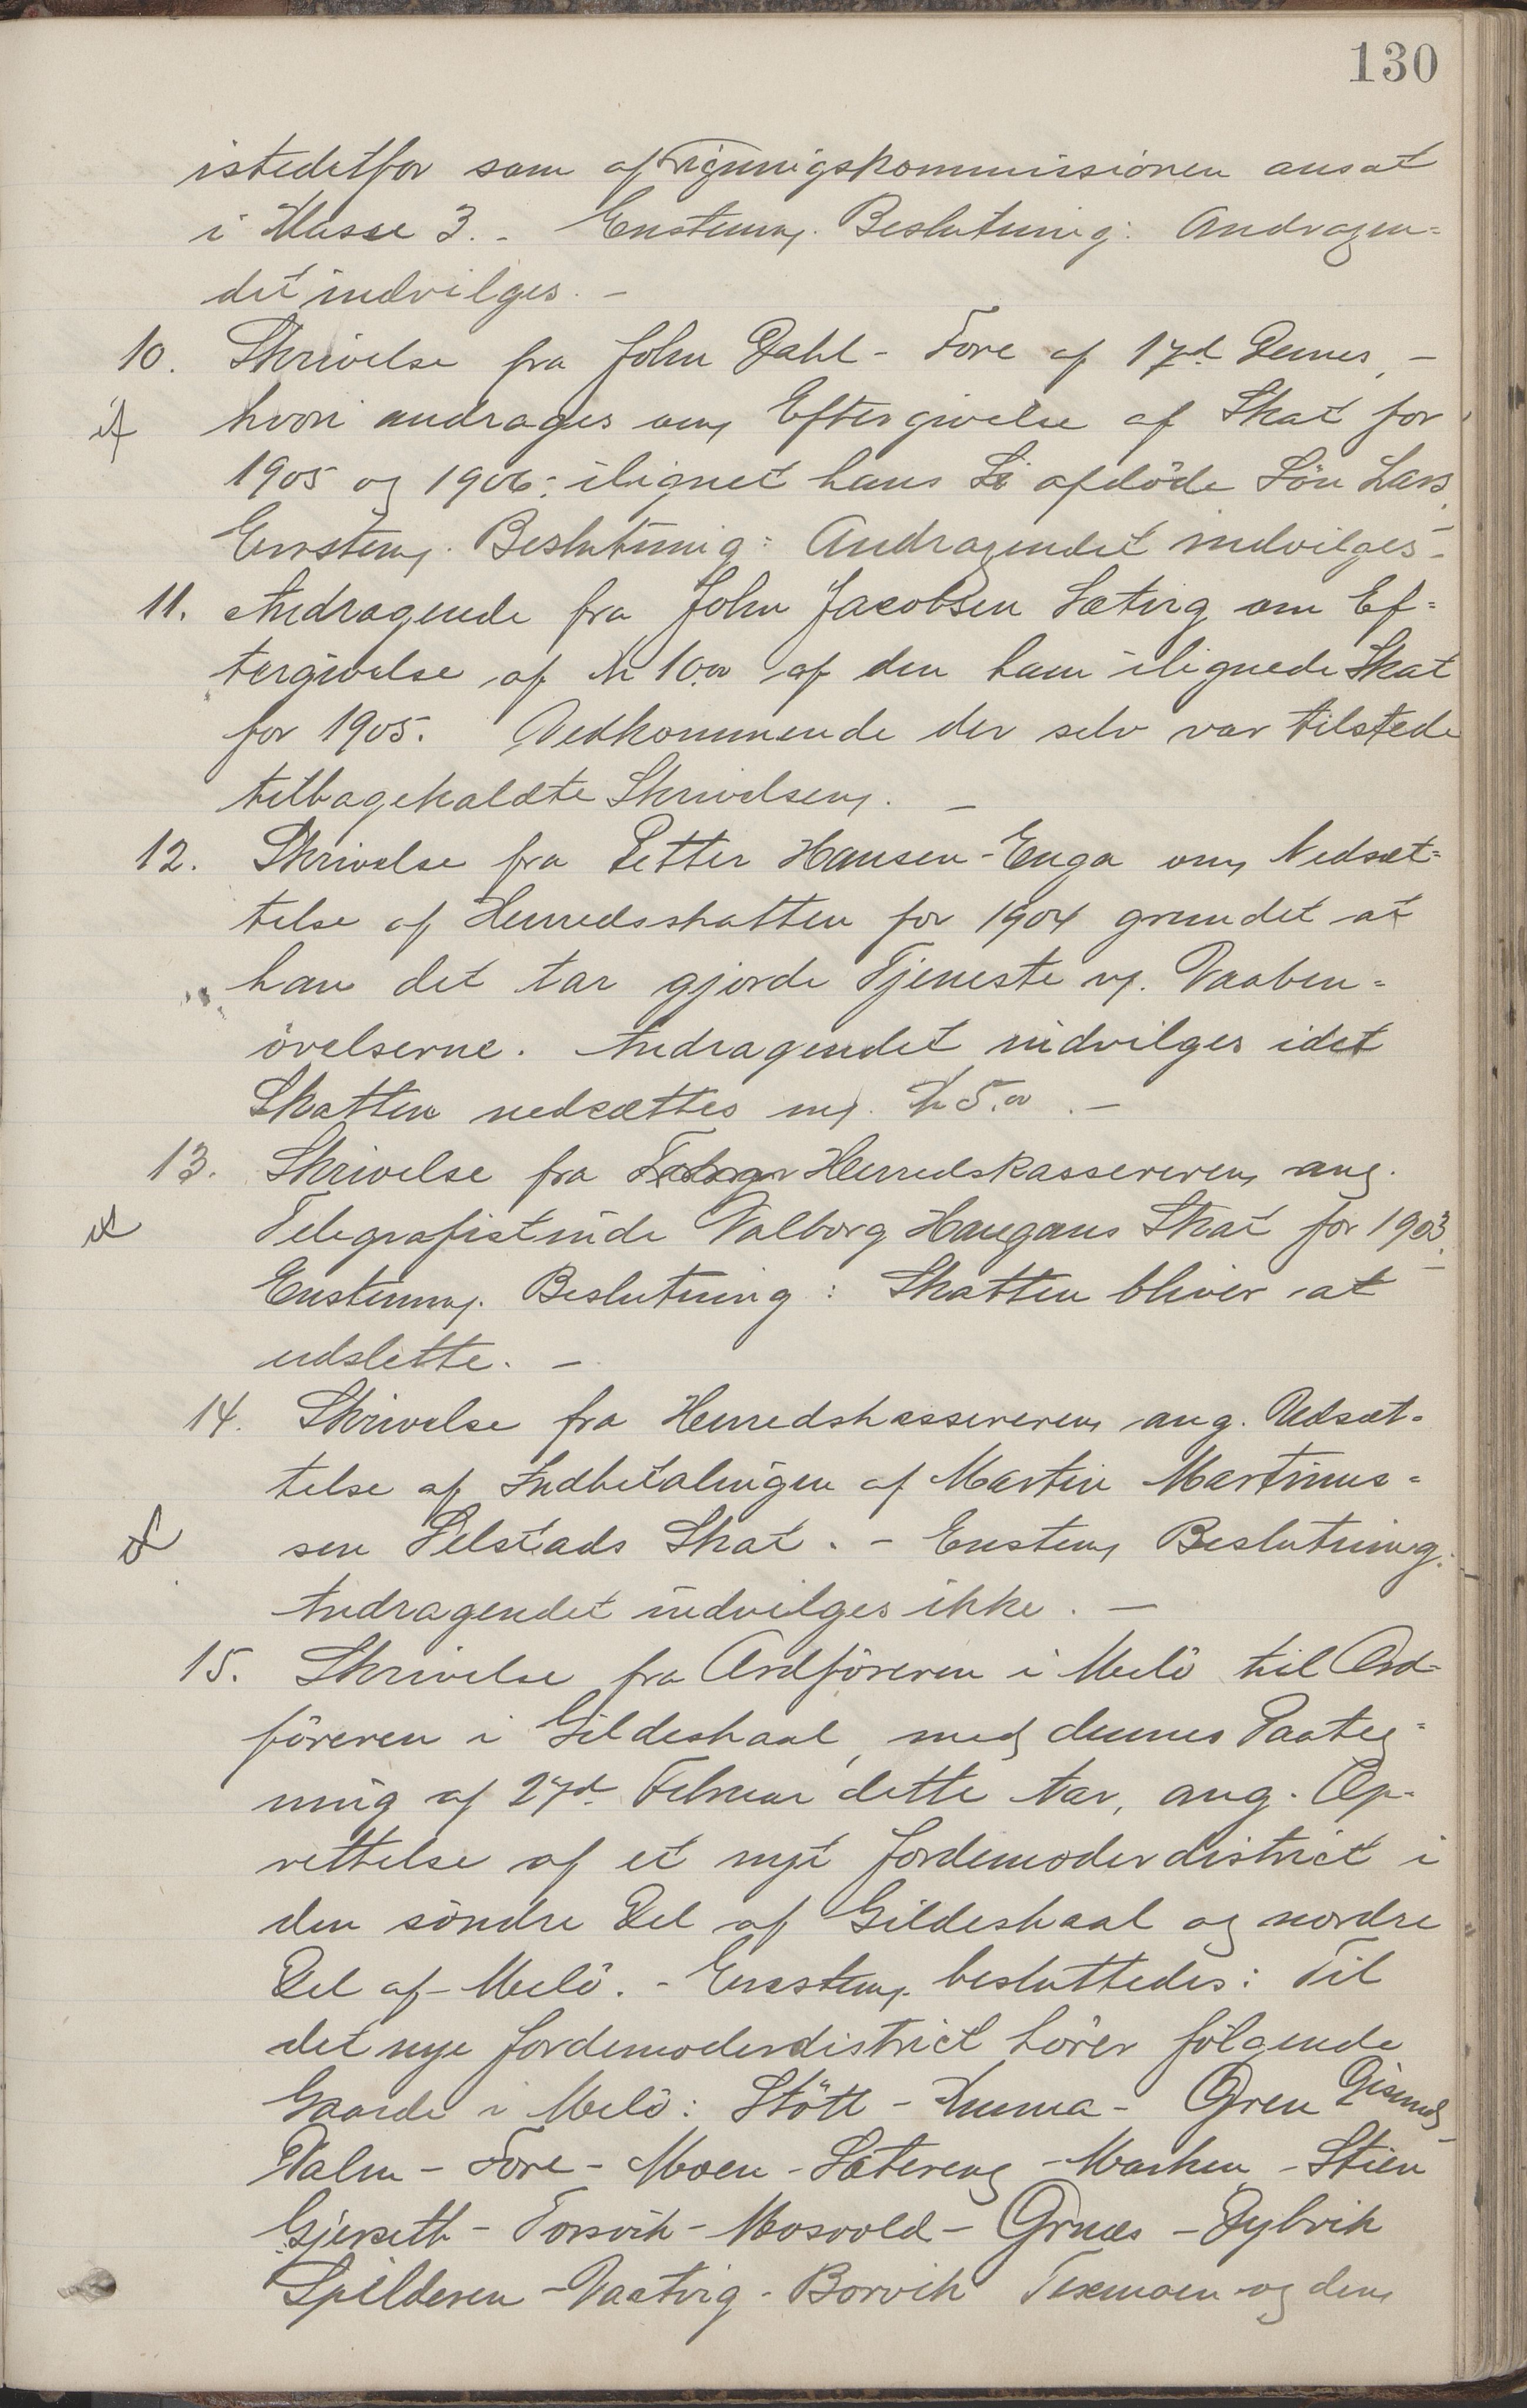 130
istedetfor som af Ligningskommissionen ansat
i Klasse 3. - Enstemmg. Beslutning: Andragen=
det indvilges. -
10. Skrivelse fra John Dahl - Fore af 17d Dennes, -
hvori andrages om Eftergivelse af Skat for
1905 og 1906: ilignet hans afdöde Sön Lars.
Enstemg. Beslutning: Andragendet indvilges. -
11. Andragende fra John Jacobsen Sætvig om Ef=
tergivelse af Kr 10.00 af den ham ilignede Skat
for 1905. Vedkommende der selv var tilstede
tilbagekaldte Skrivelsen. -
12. Skrivelse fra Petter Hansen - Enga om Nedsæt=
telse af Herredsskatten for 1904 grundet at
han det Aar gjorde Tjeneste v. Vaaben=
övelserne. Andragendet indvilges idet
Skatten nedsættes m. Kr 5.00. -
13. Skrivelse fra Herredskassereren ang.
Telegrafistinde Valborg Haugans Skat for 1903. -
Enstemmg. Beslutning: Skatten bliver at
udslette. -
14. Skrivelse fra Herredskassereren ang. Udsæt=
telse af Indbetalingen af Martin Martinus=
sen Selstads Skat. - Enstem Beslutning:
Andragendet indvilges ikke. -
15. Skrivelse fra Ordföreren i Melö til Ord=
föreren i Gildeskaal, med dennes Paateg=
ning af 27d Februar dette Aar, ang. Op=
rettelse af et nyt Jordemoderdistrict i
den söndre Del af Gildeskaal og nordre
Del af Melö. - Enstemg. besluttedes: Til
det nye Jordemoderdistrict hörer fölgende
Gaarde i Melö: Stött - - Oren
Valm - Fore - Moen - Sætereng - Marken - Stien
Gjerseth - Torsvik - Mosvold - Ornæs - Dybvik
Spilderen - Vaatvig - Borvik Texmoen og den